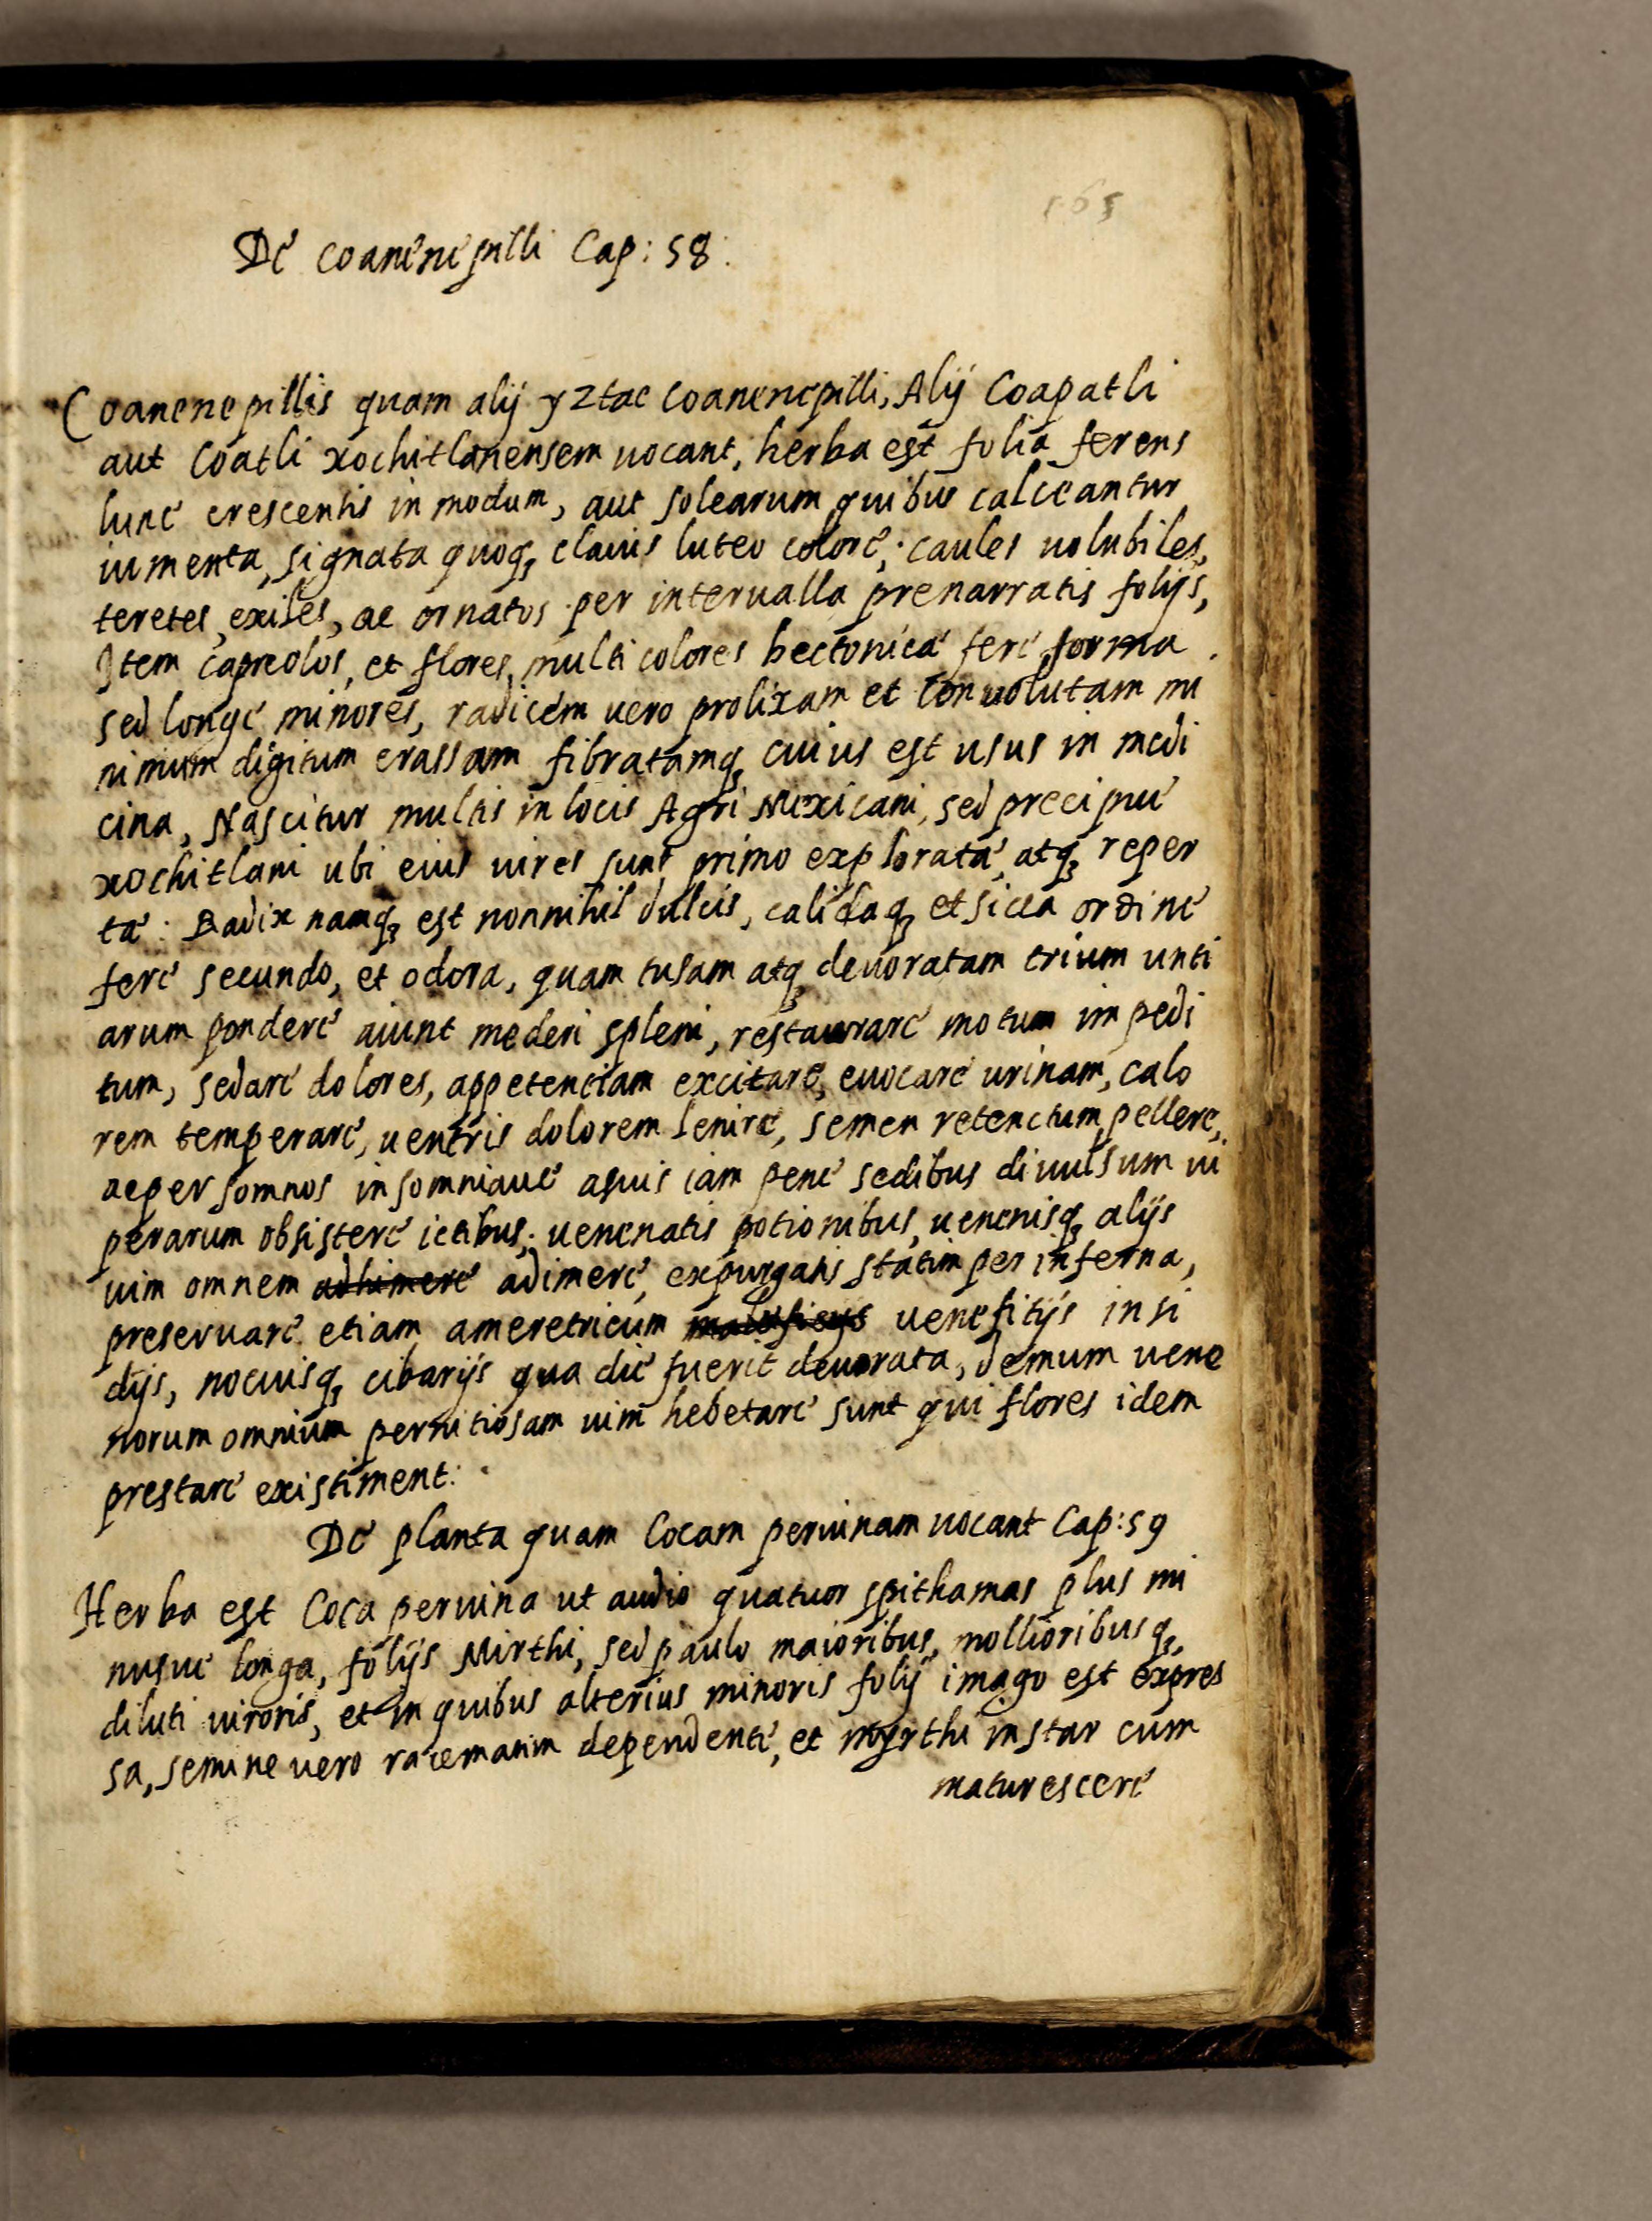 De coanenepilli Cap: 58.
Coanenepillis quam alij yztac Coanenepilli, Alij Coapatli
aut Coatli xochitlanensem uocant, herba est folia ferens
lune crescentis in modum, aut solearum quibus calceantur
iumenta, signata quoq; clauis luteo colore; caules uolubiles,
teretes, exiles, ac ornatos per interualla prenarratis folijs,
Item capreolos, et flores multi colores bectonicæ fere forma
sed longe minores, radicem uero prolixam et conuolutam mi
nimum digitum crassam fibratamq; cuius est usus in medi
cina, Nascitur multis in locis Agri Mexicani, sed precipue
xochitlani ubi eius uires sunt primo exploratæ, atq; reper
tæ: Radix namq; est nonnihil dulcis, calidaq; et sicca ordine
fere secundo, et odora, quam tusam atq; deuoratam trium unti
arum pondere aiunt mederi spleni, restaurare motum impedi
tum, sedare dolores, appetentiam excitare, euocare urinam, calo
rem temperare, uentris dolorem lenire, semen retenctum pellere,
ac per somnos insomniaue a suis iam pene sedibus diuulsum ui
perarum obsistere ictibus; uenenatis potionibus, uenenisq; alijs
uim omnem adhimere adimere, expurgatis statim per inferna,
preseruare etiam ameretricum maleficijs uenefitijs insi
dijs, nociuisq; cibarijs qua die fuerit deuorata, demum uene
norum omnium pernitiosam uim hebetare sunt qui flores idem
prestare existiment:
De planta quam Cocam peruinam uocant Cap: 59
Herba est Coca peruina ut audio quatuor spithamas plus mi
nusue longa, folijs Mirthi, sed paulo maioribus, mollioribusq;
diluti uiroris, et in quibus alterius minoris folij imago est expres
sa, semine uero racematim dependente, et myrthi instar cum
maturescere